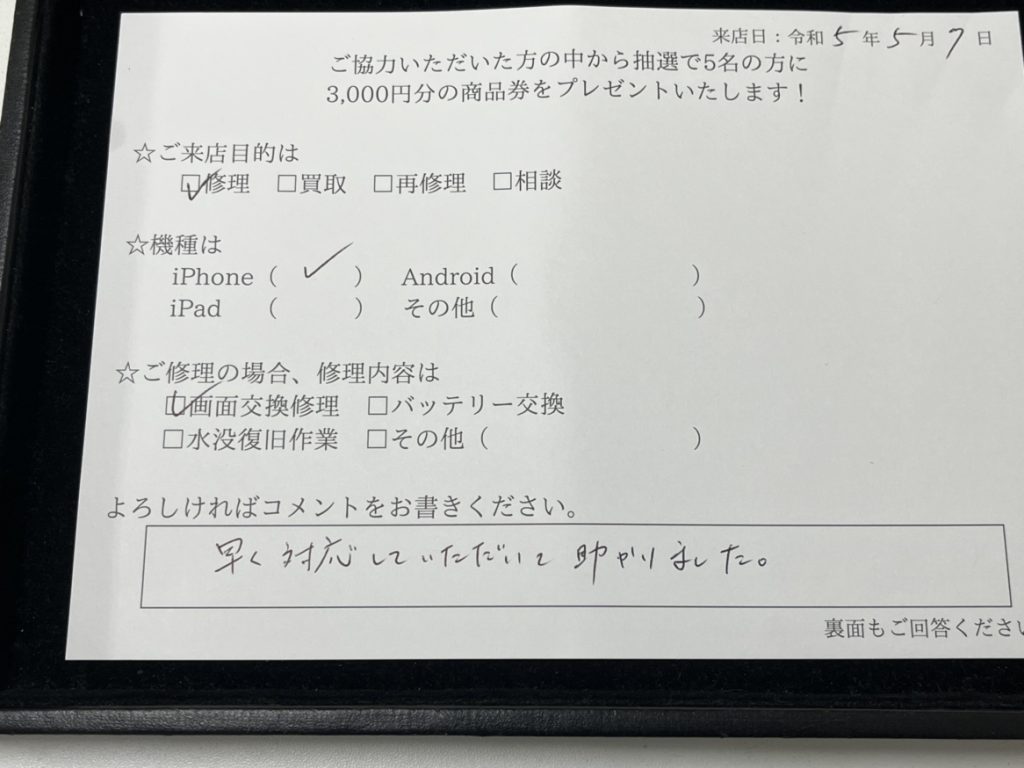 来店日：令和 5 年 5 月 7 日
ご協力いただいた方の中から抽選で5名の方に
3,000円分の商品券をプレゼントいたします！
☆ご来店目的は
☑修理 □買取 □再修理 □相談
☆機種は
iPhone（ ✓ ） Android（ ）
iPad （ ） その他（ ）
☆ご修理の場合、修理内容は
☑画面交換修理 □バッテリー交換
□水没復旧作業 □その他（ ）
よろしければコメントをお書きください。
早く対応していただいて助かりました。
裏面もご回答ください